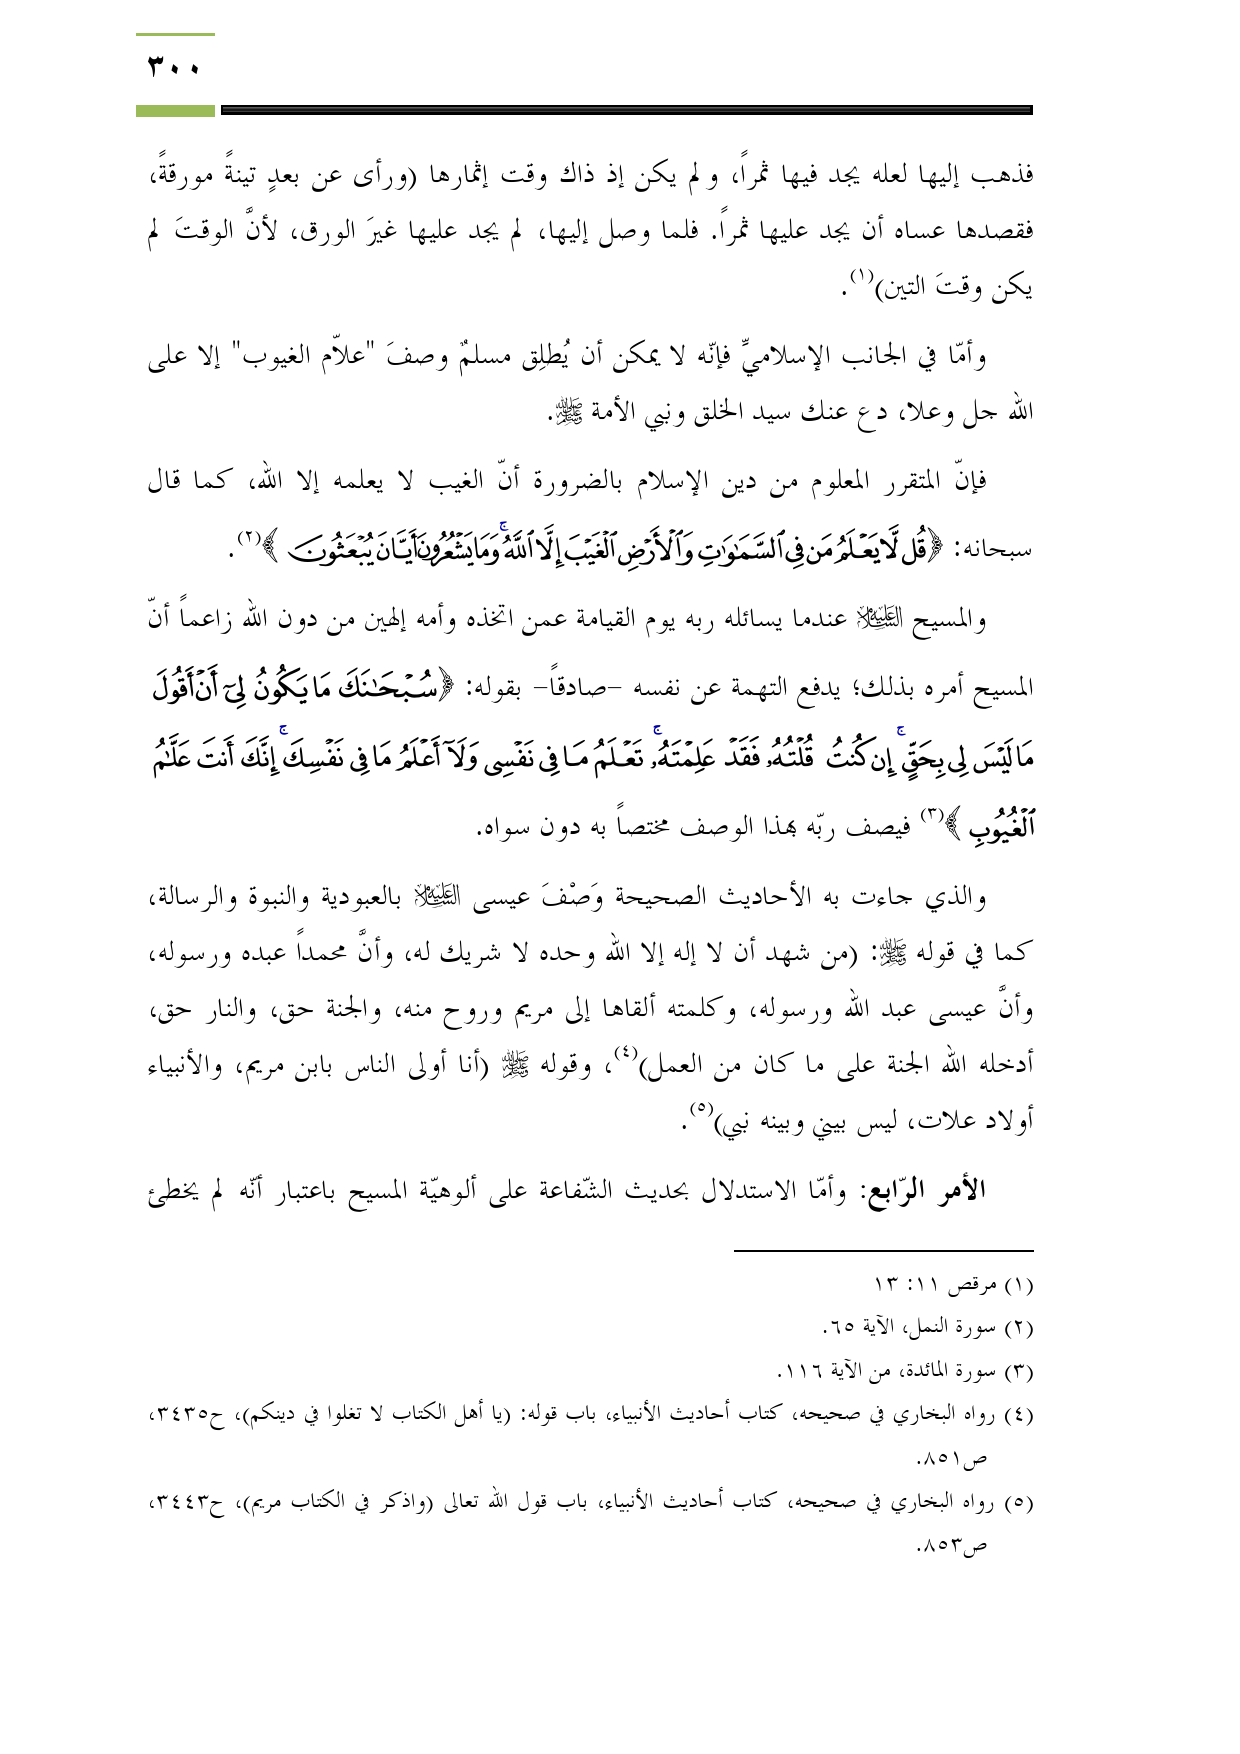 ٣٠٠
فذهب إليها لعله يجد فيها ثمراً، ولم يكن إذ ذاك وقت إثمارها (ورأى عن بعدٍ تينةً مورقةً،
فقصدها عساه أن يجد عليها ثمراً. فلما وصل إليها، لم يجد عليها غيرَ الورق، لأنَّ الوقتَ لم
يكن وقتَ التين)(١).
وأمّا في الجانب الإسلاميِّ فإنّه لا يمكن أن يُطلِق مسلمٌ وصفَ "علاّم الغيوب" إلا على
الله جل وعلا، دع عنك سيد الخلق ونبي الأمة ﷺ.
فإنّ المتقرر المعلوم من دين الإسلام بالضرورة أنّ الغيب لا يعلمه إلا الله، كما قال
سبحانه: ﴿قُل لَّا يَعْلَمُ مَن فِي ٱلسَّمَٰوَٰتِ وَٱلْأَرْضِ ٱلْغَيْبَ إِلَّا ٱللَّهُ ۚ وَمَا يَشْعُرُونَ أَيَّانَ يُبْعَثُونَ﴾(٢).
والمسيح العَلَيْهِ السَّلَام عندما يسائله ربه يوم القيامة عمن اتخذه وأمه إلهين من دون الله زاعماً أنّ
المسيح أمره بذلك؛ يدفع التهمة عن نفسه –صادقاً– بقوله: ﴿سُبْحَٰنَكَ مَا يَكُونُ لِىٓ أَنْ أَقُولَ
مَا لَيْسَ لِى بِحَقٍّ ۚ إِن كُنتُ قُلْتُهُۥ فَقَدْ عَلِمْتَهُۥ ۚ تَعْلَمُ مَا فِى نَفْسِى وَلَآ أَعْلَمُ مَا فِى نَفْسِكَ ۚ إِنَّكَ أَنتَ عَلَّٰمُ
ٱلْغُيُوبِ﴾(٣) فيصف ربّه بهذا الوصف مختصاً به دون سواه.
والذي جاءت به الأحاديث الصحيحة وَصْفَ عيسى العَلَيْهِ السَّلَام بالعبودية والنبوة والرسالة،
كما في قوله ﷺ: (من شهد أن لا إله إلا الله وحده لا شريك له، وأنَّ محمداً عبده ورسوله،
وأنَّ عيسى عبد الله ورسوله، وكلمته ألقاها إلى مريم وروح منه، والجنة حق، والنار حق،
أدخله الله الجنة على ما كان من العمل)(٤)، وقوله ﷺ (أنا أولى الناس بابن مريم، والأنبياء
أولاد علات، ليس بيني وبينه نبي)(٥).
الأمر الرّابع: وأمّا الاستدلال بحديث الشّفاعة على ألوهيّة المسيح باعتبار أنّه لم يخطئ
(١) مرقص ١١: ١٣
(٢) سورة النمل، الآية ٦٥.
(٣) سورة المائدة، من الآية ١١٦.
(٤) رواه البخاري في صحيحه، كتاب أحاديث الأنبياء، باب قوله: (يا أهل الكتاب لا تغلوا في دينكم)، ح٣٤٣٥،
ص٨٥١.
(٥) رواه البخاري في صحيحه، كتاب أحاديث الأنبياء، باب قول الله تعالى (واذكر في الكتاب مريم)، ح٣٤٤٣،
ص٨٥٣.